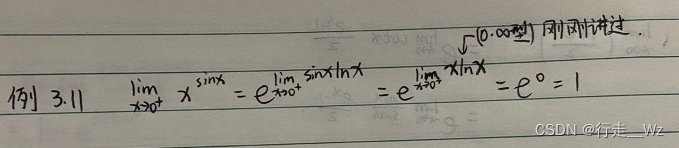 (0·∞型) 刚刚讲过.
例 3.11 lim x→0⁺ x^sinx = e^lim x→0⁺ sinx lnx = e^lim x→0⁺ xlnx = e⁰ = 1
CSDN @行走__Wz